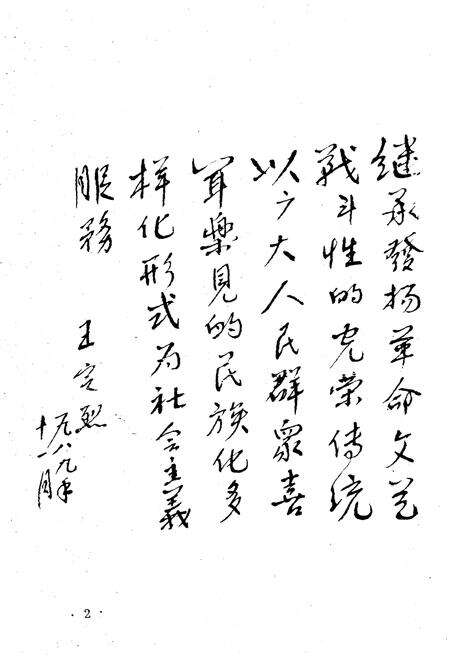 继承發扬革命文艺
战斗性的光荣传统
以广大人民群眾喜
闻樂見的民族化多
样化形式为社会主義
服務
王定烈
一九八九年
十一月
· 2 ·